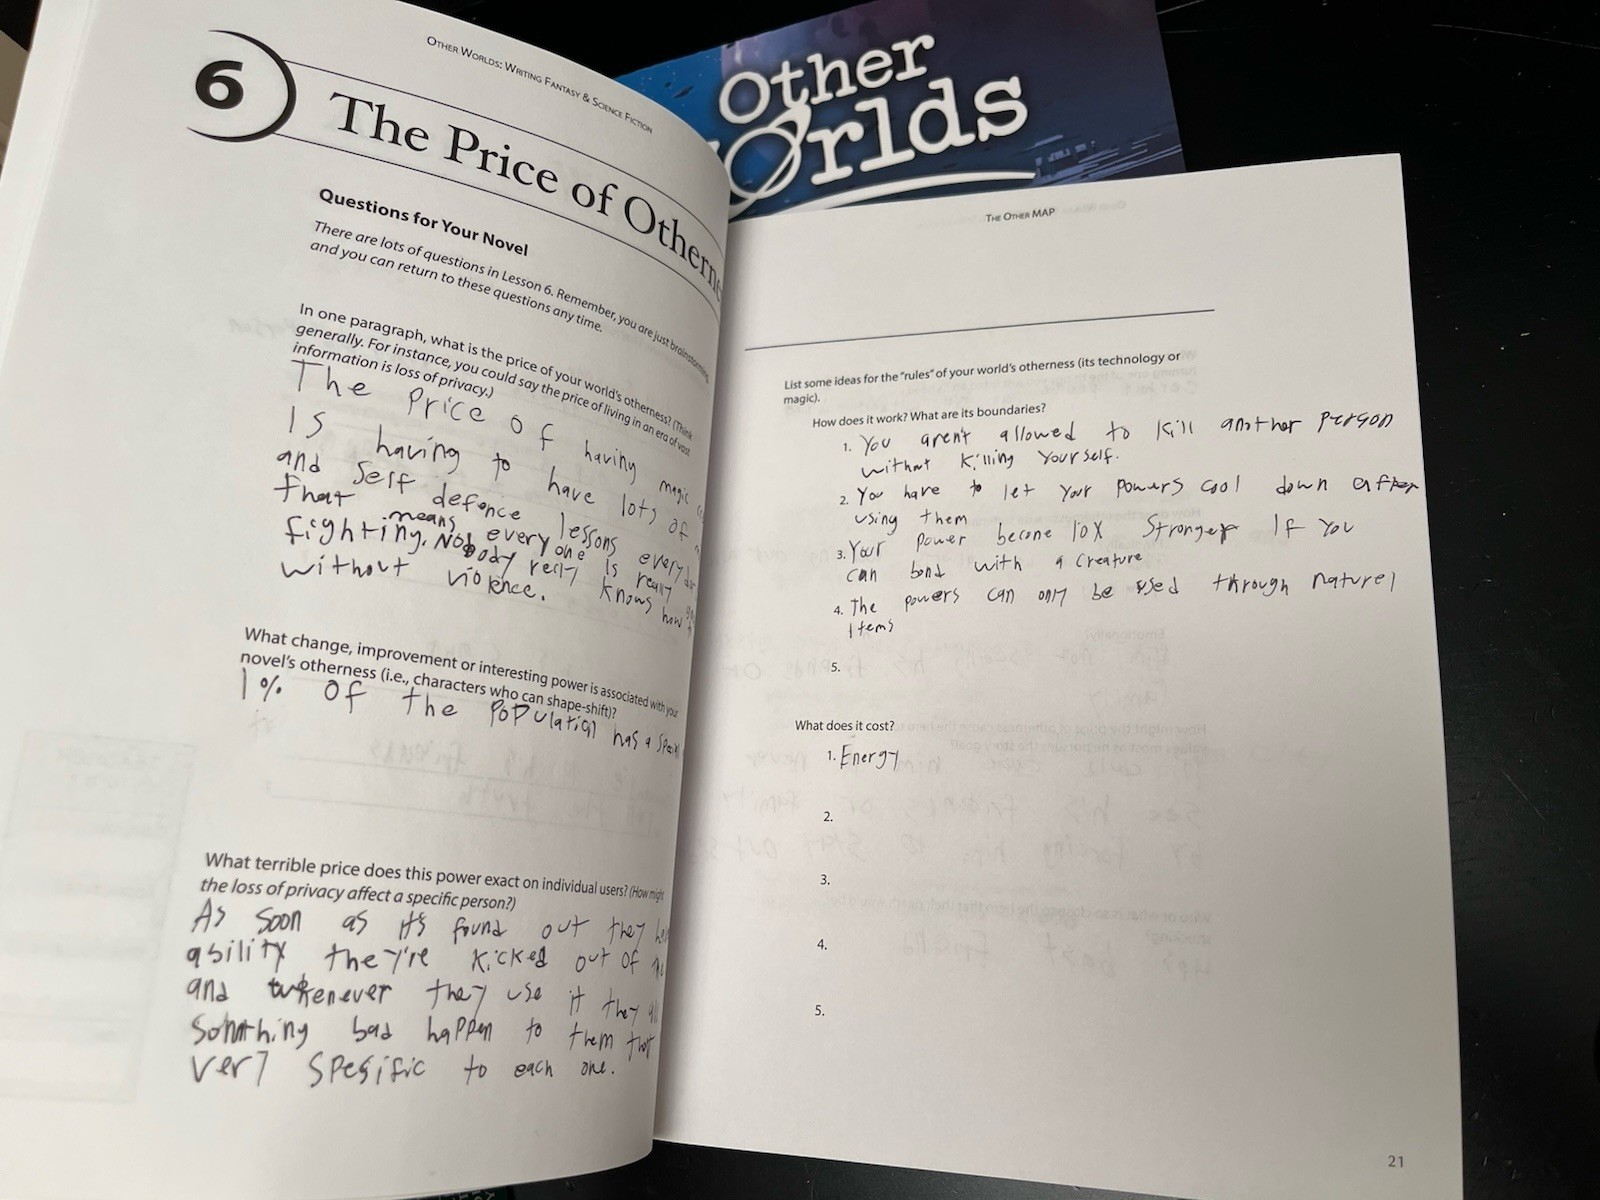 OTHER WORLDS: WRITING FANTASY & SCIENCE FICTION
6
The Price of Otherne
Questions for Your Novel
There are lots of questions in Lesson 6. Remember, you are just brainstorming
and you can return to these questions any time.
In one paragraph, what is the price of your world's otherness? (Think
generally. For instance, you could say the price of living in an era of vast
information is loss of privacy.)
The Price of having magic
Is having to have lots of
and Self defence lessons every
that means every one is really
fighting. Nobody really knows how
without violence.
What change, improvement or interesting power is associated with your
novel's otherness (i.e., characters who can shape-shift)?
1% of the population has a
What terrible price does this power exact on individual users? (How might
the loss of privacy affect a specific person?)
As soon as it's found out they
ability they're kicked out of
and whenever they use it they
Somthing bad happen to them that
very spesific to each one.
Other
Worlds
THE OTHER MAP
List some ideas for the "rules" of your world's otherness (its technology or
magic).
How does it work? What are its boundaries?
1. You aren't allowed to kill another person
without killing yourself.
2. You have to let your powers cool down after
using them
3. Your power become 10X Stronger If you
can bond with a creature
4. The powers can only be used through naturel
Items
5.
What does it cost?
1. Energy
2.
3.
4.
5.
21